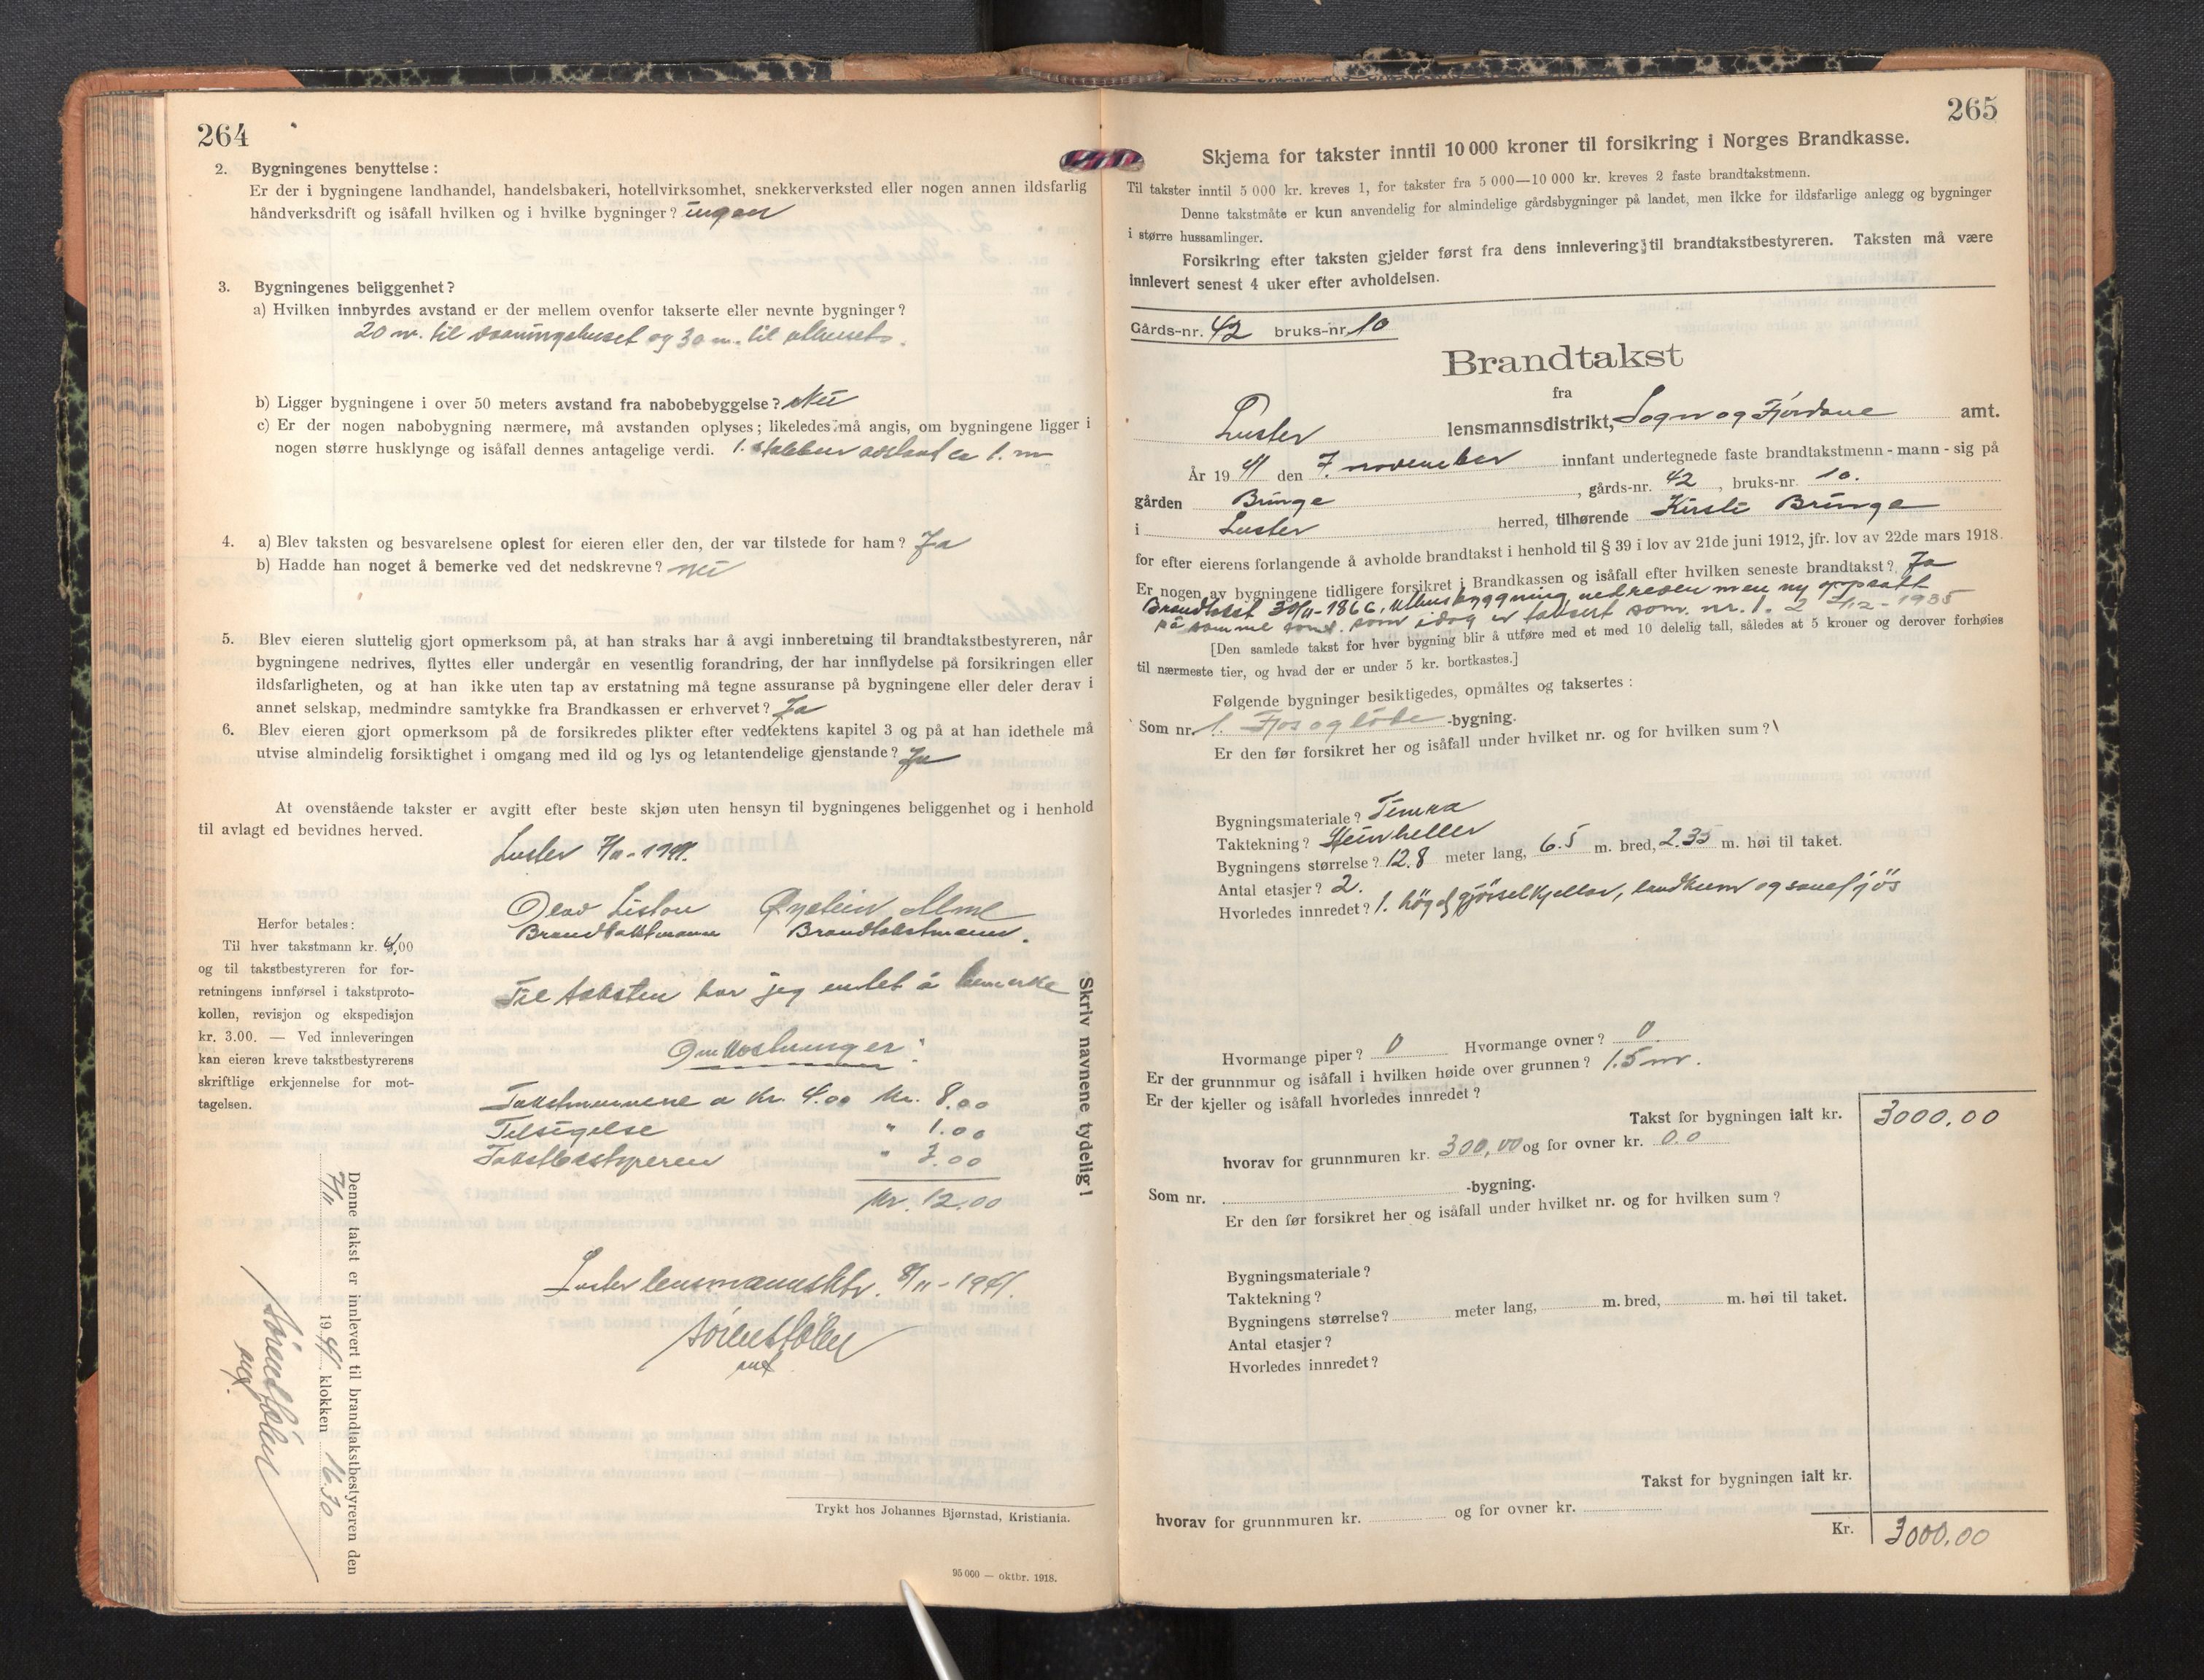 264
2. Bygningenes benyttelse:
Er der i bygningene landhandel, handelsbakeri, hotellvirksomhet, snekkerverksted eller nogen annen ildsfarlig
håndverksdrift og isåfall hvilken og i hvilke bygninger? ingen
3. Bygningenes beliggenhet?
a) Hvilken innbyrdes avstand er der mellem ovenfor takserte eller nevnte bygninger?
20 m. til vaaningshuset og 30 m. til uthuset.
b) Ligger bygningene i over 50 meters avstand fra nabobebyggelse? Nei
c) Er der nogen nabobygning nærmere, må avstanden oplyses; likeledes må angis, om bygningene ligger i
nogen større husklynge og isåfall dennes antagelige verdi. 1. stabbur avstand ca 1. m
4. a) Blev taksten og besvarelsene oplest for eieren eller den, der var tilstede for ham? Ja
b) Hadde han noget å bemerke ved det nedskrevne? Nei
5. Blev eieren sluttelig gjort opmerksom på, at han straks har å avgi innberetning til brandtakstbestyreren, når
bygningene nedrives, flyttes eller undergår en vesentlig forandring, der har innflydelse på forsikringen eller
ildsfarligheten, og at han ikke uten tap av erstatning må tegne assuranse på bygningene eller deler derav i
annet selskap, medmindre samtykke fra Brandkassen er erhvervet? Ja
6. Blev eieren gjort opmerksom på de forsikredes plikter efter vedtektens kapitel 3 og på at han idethele må
utvise almindelig forsiktighet i omgang med ild og lys og letantendelige gjenstande? Ja
At ovenstående takster er avgitt efter beste skjøn uten hensyn til bygningenes beliggenhet og i henhold
til avlagt ed bevidnes herved.
Luster 7/11-1941.
Brandtakstmann Brandtakstmann.
Herfor betales:
Til hver takstmann kr. 4,00
og til takstbestyreren for for-
retningens innførsel i takstproto-
kollen, revisjon og ekspedisjon
kr. 3.00. — Ved innleveringen
kan eieren kreve takstbestyrerens
skriftlige erkjennelse for mot-
tagelsen.
Til taksten har jeg intet å bemerke
Omkostninger:
Takstmennene a kr. 4.00 kr. 8.00
Tilsigelse " 1.00
Takstbestyreren " 3.00
kr. 12.00
Luster lensmannsktr. 8/11-1941.
Skriv navnene tydelig!
Denne takst er innlevert til brandtakstbestyreren den
7/11 1941 klokken 16.30
Trykt hos Johannes Bjørnstad, Kristiania.
95 000 — oktbr. 1918.
265
Skjema for takster inntil 10 000 kroner til forsikring i Norges Brandkasse.
Til takster inntil 5 000 kr. kreves 1, for takster fra 5 000—10 000 kr. kreves 2 faste brandtakstmenn.
Denne takstmåte er kun anvendelig for almindelige gårdsbygninger på landet, men ikke for ildsfarlige anlegg og bygninger
i større hussamlinger.
Forsikring efter taksten gjelder først fra dens innlevering til brandtakstbestyreren. Taksten må være
innlevert senest 4 uker efter avholdelsen.
Gårds-nr. 42 bruks-nr. 10
Brandtakst
fra
Luster lensmannsdistrikt, Sogn og Fjordane amt.
År 1941 den 7. november innfant undertegnede faste brandtakstmenn - mann - sig på
gården Bringe, gårds-nr. 42, bruks-nr. 10.
i Luster herred, tilhørende Kirsti Bringe
for efter eierens forlangende å avholde brandtakst i henhold til § 39 i lov av 21de juni 1912, jfr. lov av 22de mars 1918.
Er nogen av bygningene tidligere forsikret i Brandkassen og isåfall efter hvilken seneste brandtakst? Ja
Brandtakst 30/11-1866, uthusbyggning nedreven men ny oppsatt
på samme som idag er taksert som nr. 1. 2 7/12-1935
[Den samlede takst for hver bygning blir å utføre med et med 10 delelig tall, således at 5 kroner og derover forhøies
til nærmeste tier, og hvad der er under 5 kr. bortkastes.]
Følgende bygninger besiktigedes, opmåltes og taksertes:
Som nr. 1. Fjos og løde -bygning.
Er den før forsikret her og isåfall under hvilket nr. og for hvilken sum?
Bygningsmateriale? Timra
Taktekning? Steinheller
Bygningens størrelse? 12.8 meter lang, 6.5 m. bred, 2.35 m. høi til taket.
Antal etasjer? 2.
Hvorledes innredet? 1. høg gjørselkjellar, landkum og sauefjös
Hvormange piper? 0 Hvormange ovner? 0
Er der grunnmur og isåfall i hvilken høide over grunnen? 1.5 m.
Er der kjeller og isåfall hvorledes innredet?
Takst for bygningen ialt kr. 3000,00
hvorav for grunnmuren kr. 300,00 og for ovner kr. 0.0
Som nr. -bygning.
Er den før forsikret her og isåfall under hvilket nr. og for hvilken sum?
Bygningsmateriale?
Taktekning?
Bygningens størrelse? meter lang, m. bred, m. høi til taket.
Antal etasjer?
Hvorledes innredet?
Takst for bygningen ialt kr.
hvorav for grunnmuren kr. og for ovner kr.
Kr. 3000,00